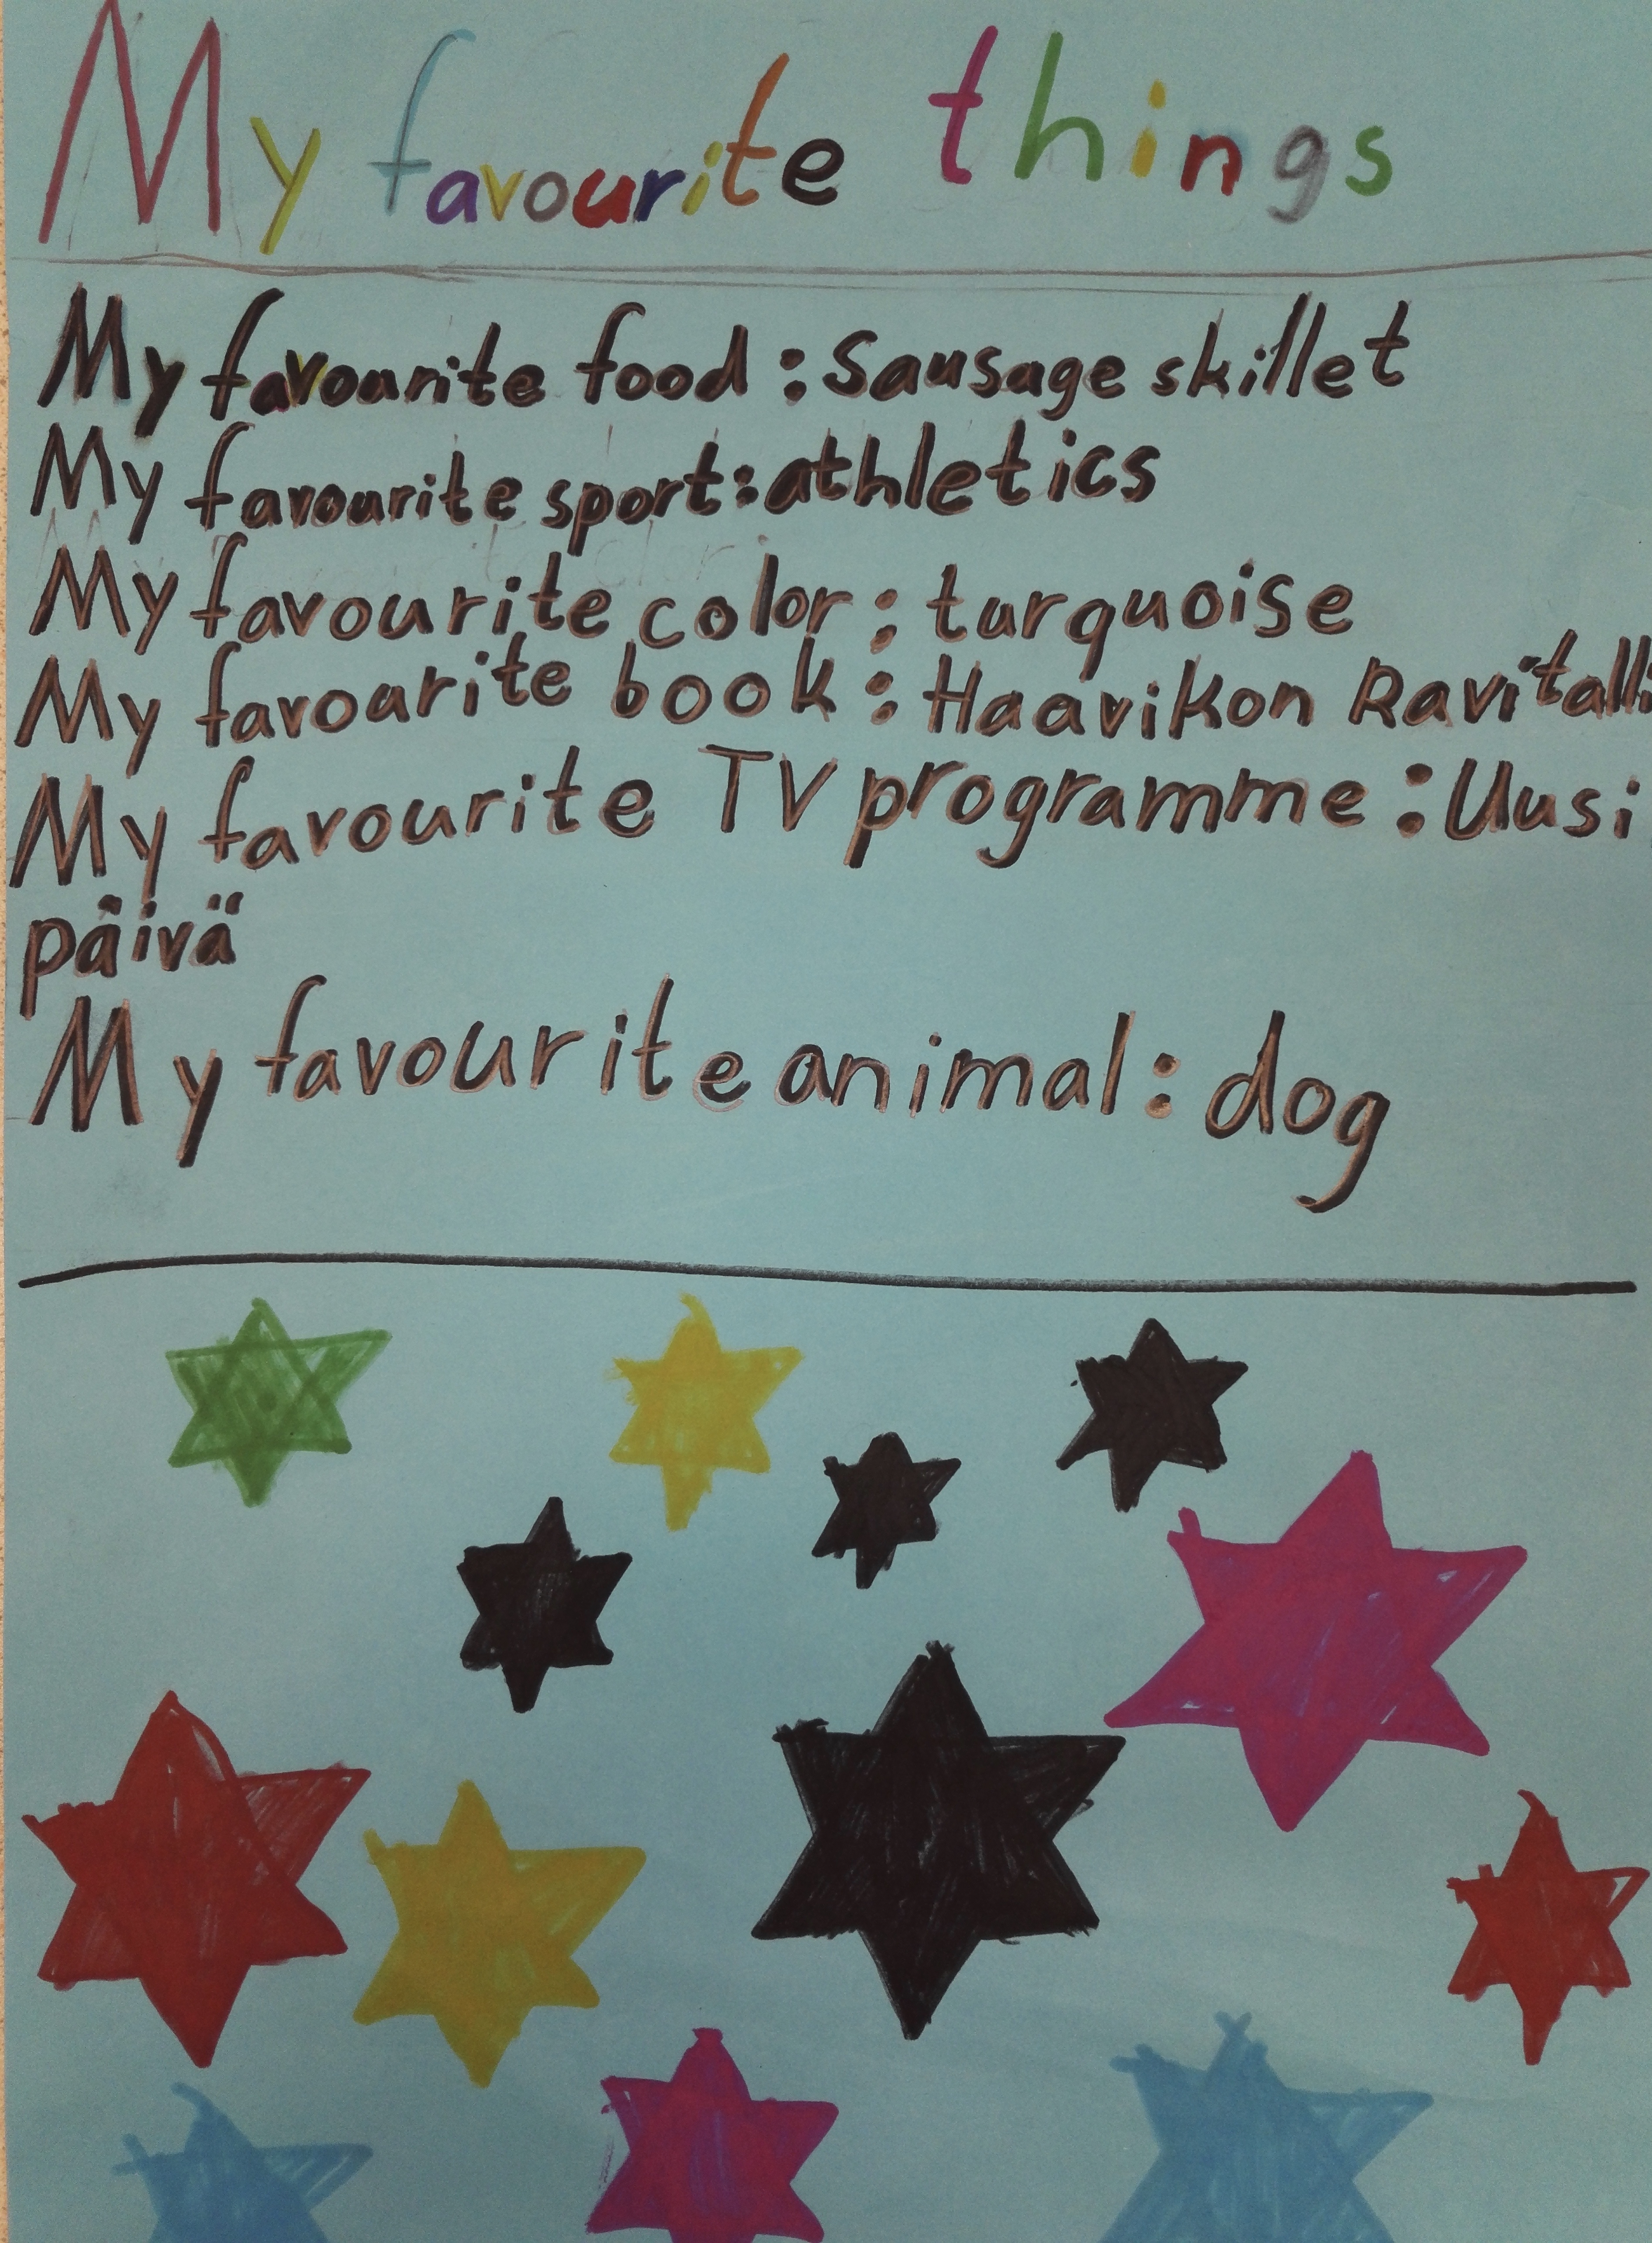 My favourite things
My favourite food : Sausage skillet
My favourite sport : athletics
My favourite color : turquoise
My favourite book : Haavikon Ravitalli
My favourite TV programme : Uusi
päivä
My favourite animal : dog